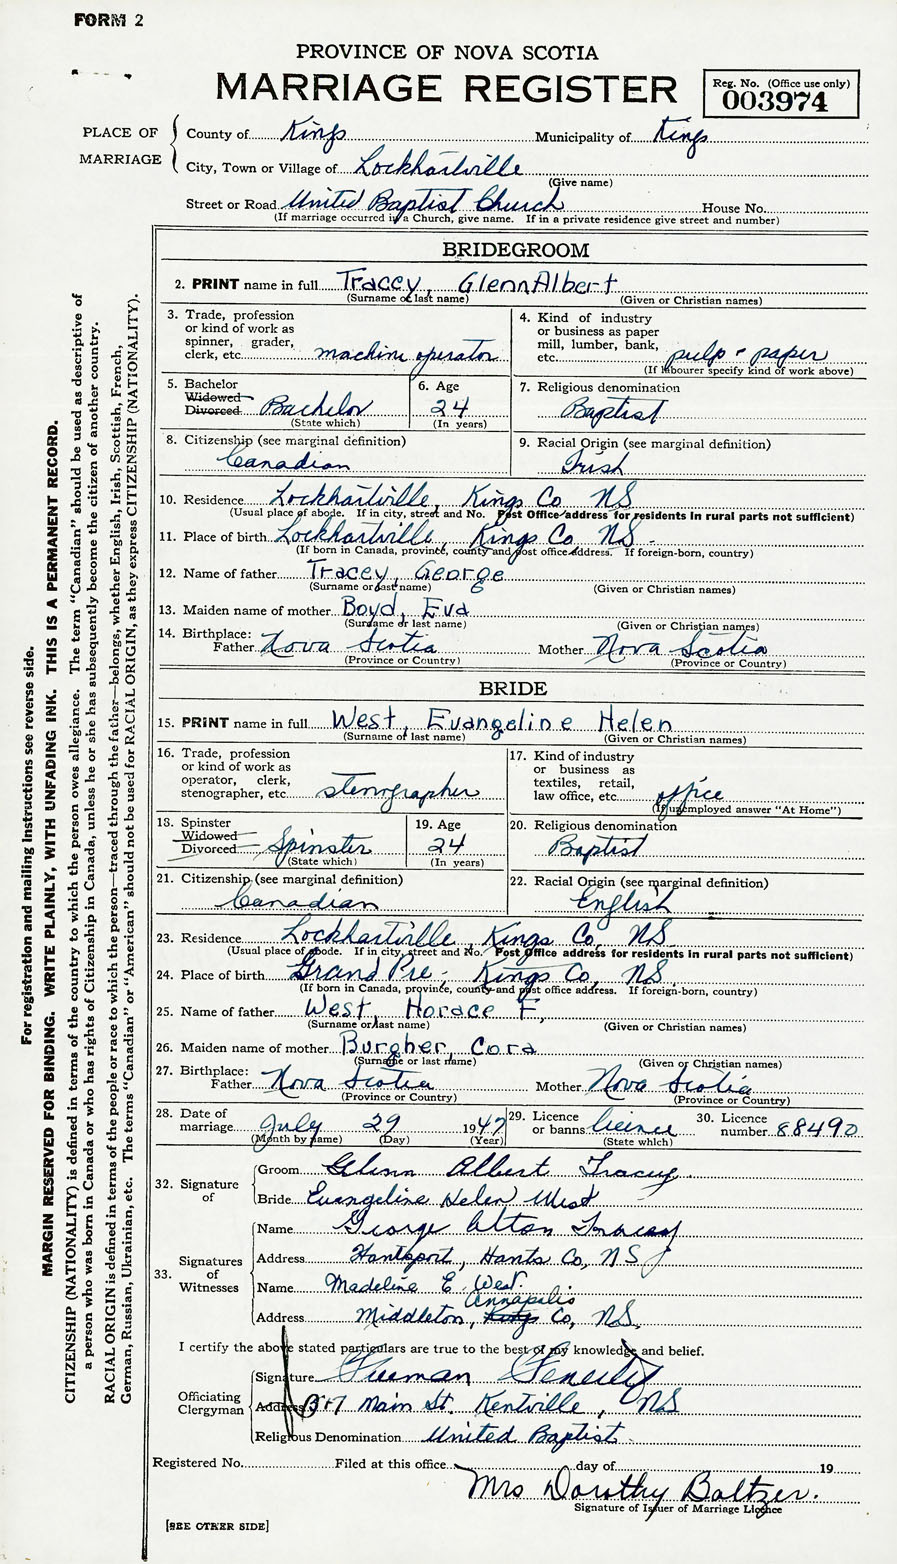 FORM 2
PROVINCE OF NOVA SCOTIA
MARRIAGE REGISTER
Reg. No. (Office use only)
003974
PLACE OF MARRIAGE
County of Kings Municipality of Kings
City, Town or Village of Lockhartville
(Give name)
Street or Road United Baptist Church House No.
(If marriage occurred in a Church, give name. If in a private residence give street and number)
BRIDEGROOM
2. PRINT name in full Tracey, Glenn Albert
(Surname or last name) (Given or Christian names)
3. Trade, profession or kind of work as spinner, grader, clerk, etc. machine operator
4. Kind of industry or business as paper mill, lumber, bank, etc. pulp & paper
(If labourer specify kind of work above)
5. Bachelor Widowed Divorced Bachelor
(State which)
6. Age 24
(In years)
7. Religious denomination Baptist
8. Citizenship (see marginal definition) Canadian
9. Racial Origin (see marginal definition) Irish
10. Residence Lockhartville, Kings Co NS
(Usual place of abode. If in city, street and No. Post Office address for residents in rural parts not sufficient)
11. Place of birth Lockhartville, Kings Co NS.
(If born in Canada, province, county and post office address. If foreign-born, country)
12. Name of father Tracey, George
(Surname or last name) (Given or Christian names)
13. Maiden name of mother Boyd, Eva
(Surname or last name) (Given or Christian names)
14. Birthplace: Father Nova Scotia Mother Nova Scotia
(Province or Country) (Province or Country)
BRIDE
15. PRINT name in full West, Evangeline Helen
(Surname of last name) (Given or Christian names)
16. Trade, profession or kind of work as operator, clerk, stenographer, etc. stenographer
17. Kind of industry or business as textiles, retail, law office, etc. office
(If unemployed answer "At Home")
18. Spinster Widowed Divorced Spinster
(State which)
19. Age 24
(In years)
20. Religious denomination Baptist
21. Citizenship (see marginal definition) Canadian
22. Racial Origin (see marginal definition) English
23. Residence Lockhartville, Kings Co, NS
(Usual place of abode. If in city, street and No. Post Office address for residents in rural parts not sufficient)
24. Place of birth Grand Pre, Kings Co, NS.
(If born in Canada, province, county and post office address. If foreign-born, country)
25. Name of father West, Horace F,
(Surname or last name) (Given or Christian names)
26. Maiden name of mother Burgher, Cora
(Surname or last name) (Given or Christian names)
27. Birthplace: Father Nova Scotia Mother Nova Scotia
(Province or Country) (Province or Country)
28. Date of marriage July 29 1947
(Month by name) (Day) (Year)
29. Licence or banns licence
(State which)
30. Licence number 88490
32. Signature of
Groom Glenn Albert Tracey
Bride Evangeline Helen West
33. Signatures of Witnesses
Name George Alton Tracey
Address Hantsport, Hants Co, NS
Name Madeline E. West.
Annapolis
Address Middleton, Kings Co, NS.
I certify the above stated particulars are true to the best of my knowledge and belief.
Officiating Clergyman
Signature Freeman Fenerty
Address 317 Main St. Kentville, NS
Religious Denomination United Baptist.
Registered No. Filed at this office day of 19
Mrs Dorothy Baltzer.
Signature of Issuer of Marriage Licence
[SEE OTHER SIDE]
For registration and mailing instructions see reverse side.
MARGIN RESERVED FOR BINDING. WRITE PLAINLY, WITH UNFADING INK. THIS IS A PERMANENT RECORD.
CITIZENSHIP (NATIONALITY) is defined in terms of the country to which the person owes allegiance. The term "Canadian" should be used as descriptive of
a person who was born in Canada or who has rights of Citizenship in Canada, unless he or she has subsequently become the citizen of another country.
RACIAL ORIGIN is defined in terms of the people or race to which the person—traced through the father—belongs, whether English, Irish, Scottish, French,
German, Russian, Ukrainian, etc. The terms "Canadian" or "American" should not be used for RACIAL ORIGIN, as they express CITIZENSHIP (NATIONALITY).